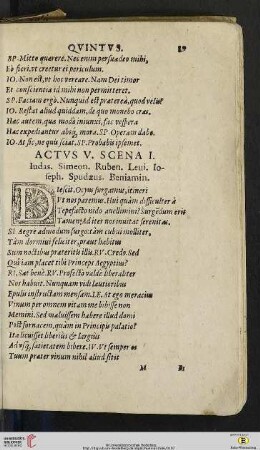 QVINTVS.
SP. Mitto quærere. Nos enim persuadeo mihi,
IO. Non est, vt hoc vereare. Nam Dei timor
Et conscientia id mihi non permitteret.
SP. Factum ergò. Nunquid est præterea, quod velis?
IO. Restat aliud quiddam, de quo monebo cras,
Hac autem, qua modo iniunxi, fac vespera
Hæc expediantur absq́; mora. SP. Operam dabo.
IO. At sic, ne quis sciat. SP. Probabis ipsimet.
ACTVS V. SCENA I.
Iudas. Simeon. Ruben. Leui. Io-
seph. Spudæus. Beniamin.
DIescit. Ocyus surgamus, itineri
Vt nos paremus. Hui quàm difficulter à
Tepefacto nido auellimini! Surgendum erit
Tamen, & ad iter nos inuitat serenitas.
SI. Aegrè admodum surgo: tam cubui molliter,
Tàm dormiui feliciter, præut habitus
Sum noctibus præteritis illis. RV. Credo. Sed
Qui iam placet tibi Princeps Aegyptius?
SI. Sat benè. RV. Profectò valde liberaliter
Nos habuit. Nunquam vidi lautioribus
Epulis instructam mensam. LE. Et ego meracius
Vinum per omnem vitam me bibisse non
Memini. Sed maluissem habere illud domi
Post fornacem, quàm in Principis palatio:
Ita licuisset liberius & largius
Ad vsq́; satietatem bibere. IV. Vt semper os
Tuum præter vinum nihil aliud sitit
M